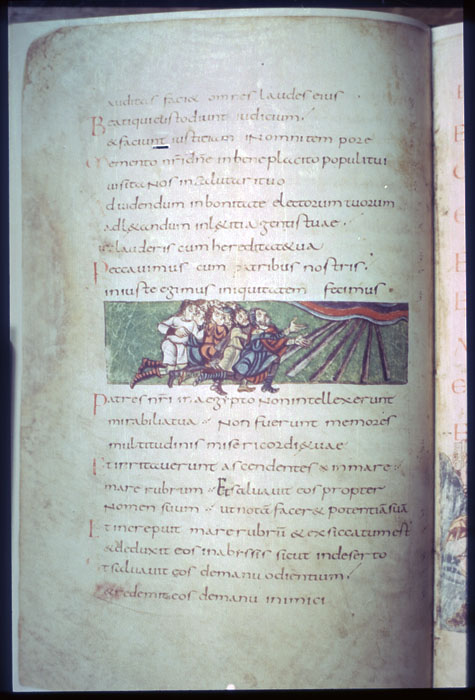 auditas faci& omnes laudes eius
Beati qui custodiunt iudicium.
& faciunt iustitiam in omni tempore
Memento nr̄i dn̄e in beneplacito populi tui
uisita nos in salutari tuo
d uidendum in bonitate electorum tuorum
ad l&andum in l&itia gentis tuae.
ut lauderis cum hereditate tua
Peccauimus cum patribus nostris.
iniuste egimus iniquitatem fecimus.
Patres nr̄i in aegypto non intellexerunt
mirabilia tua. Non fuerunt memores
multitudinis misericordi& uae
Et irritauerunt ascendentes in mare
mare rubrum. Et saluauit eos propter
Nomen suum. ut notā facer& potentiā suā
Et increpuit mare rubrū & exsiccatum est
& deduxit eos in abyssis sicut in deserto
t saluauit eos de manu odientium.
& redemit eos de manu inimici